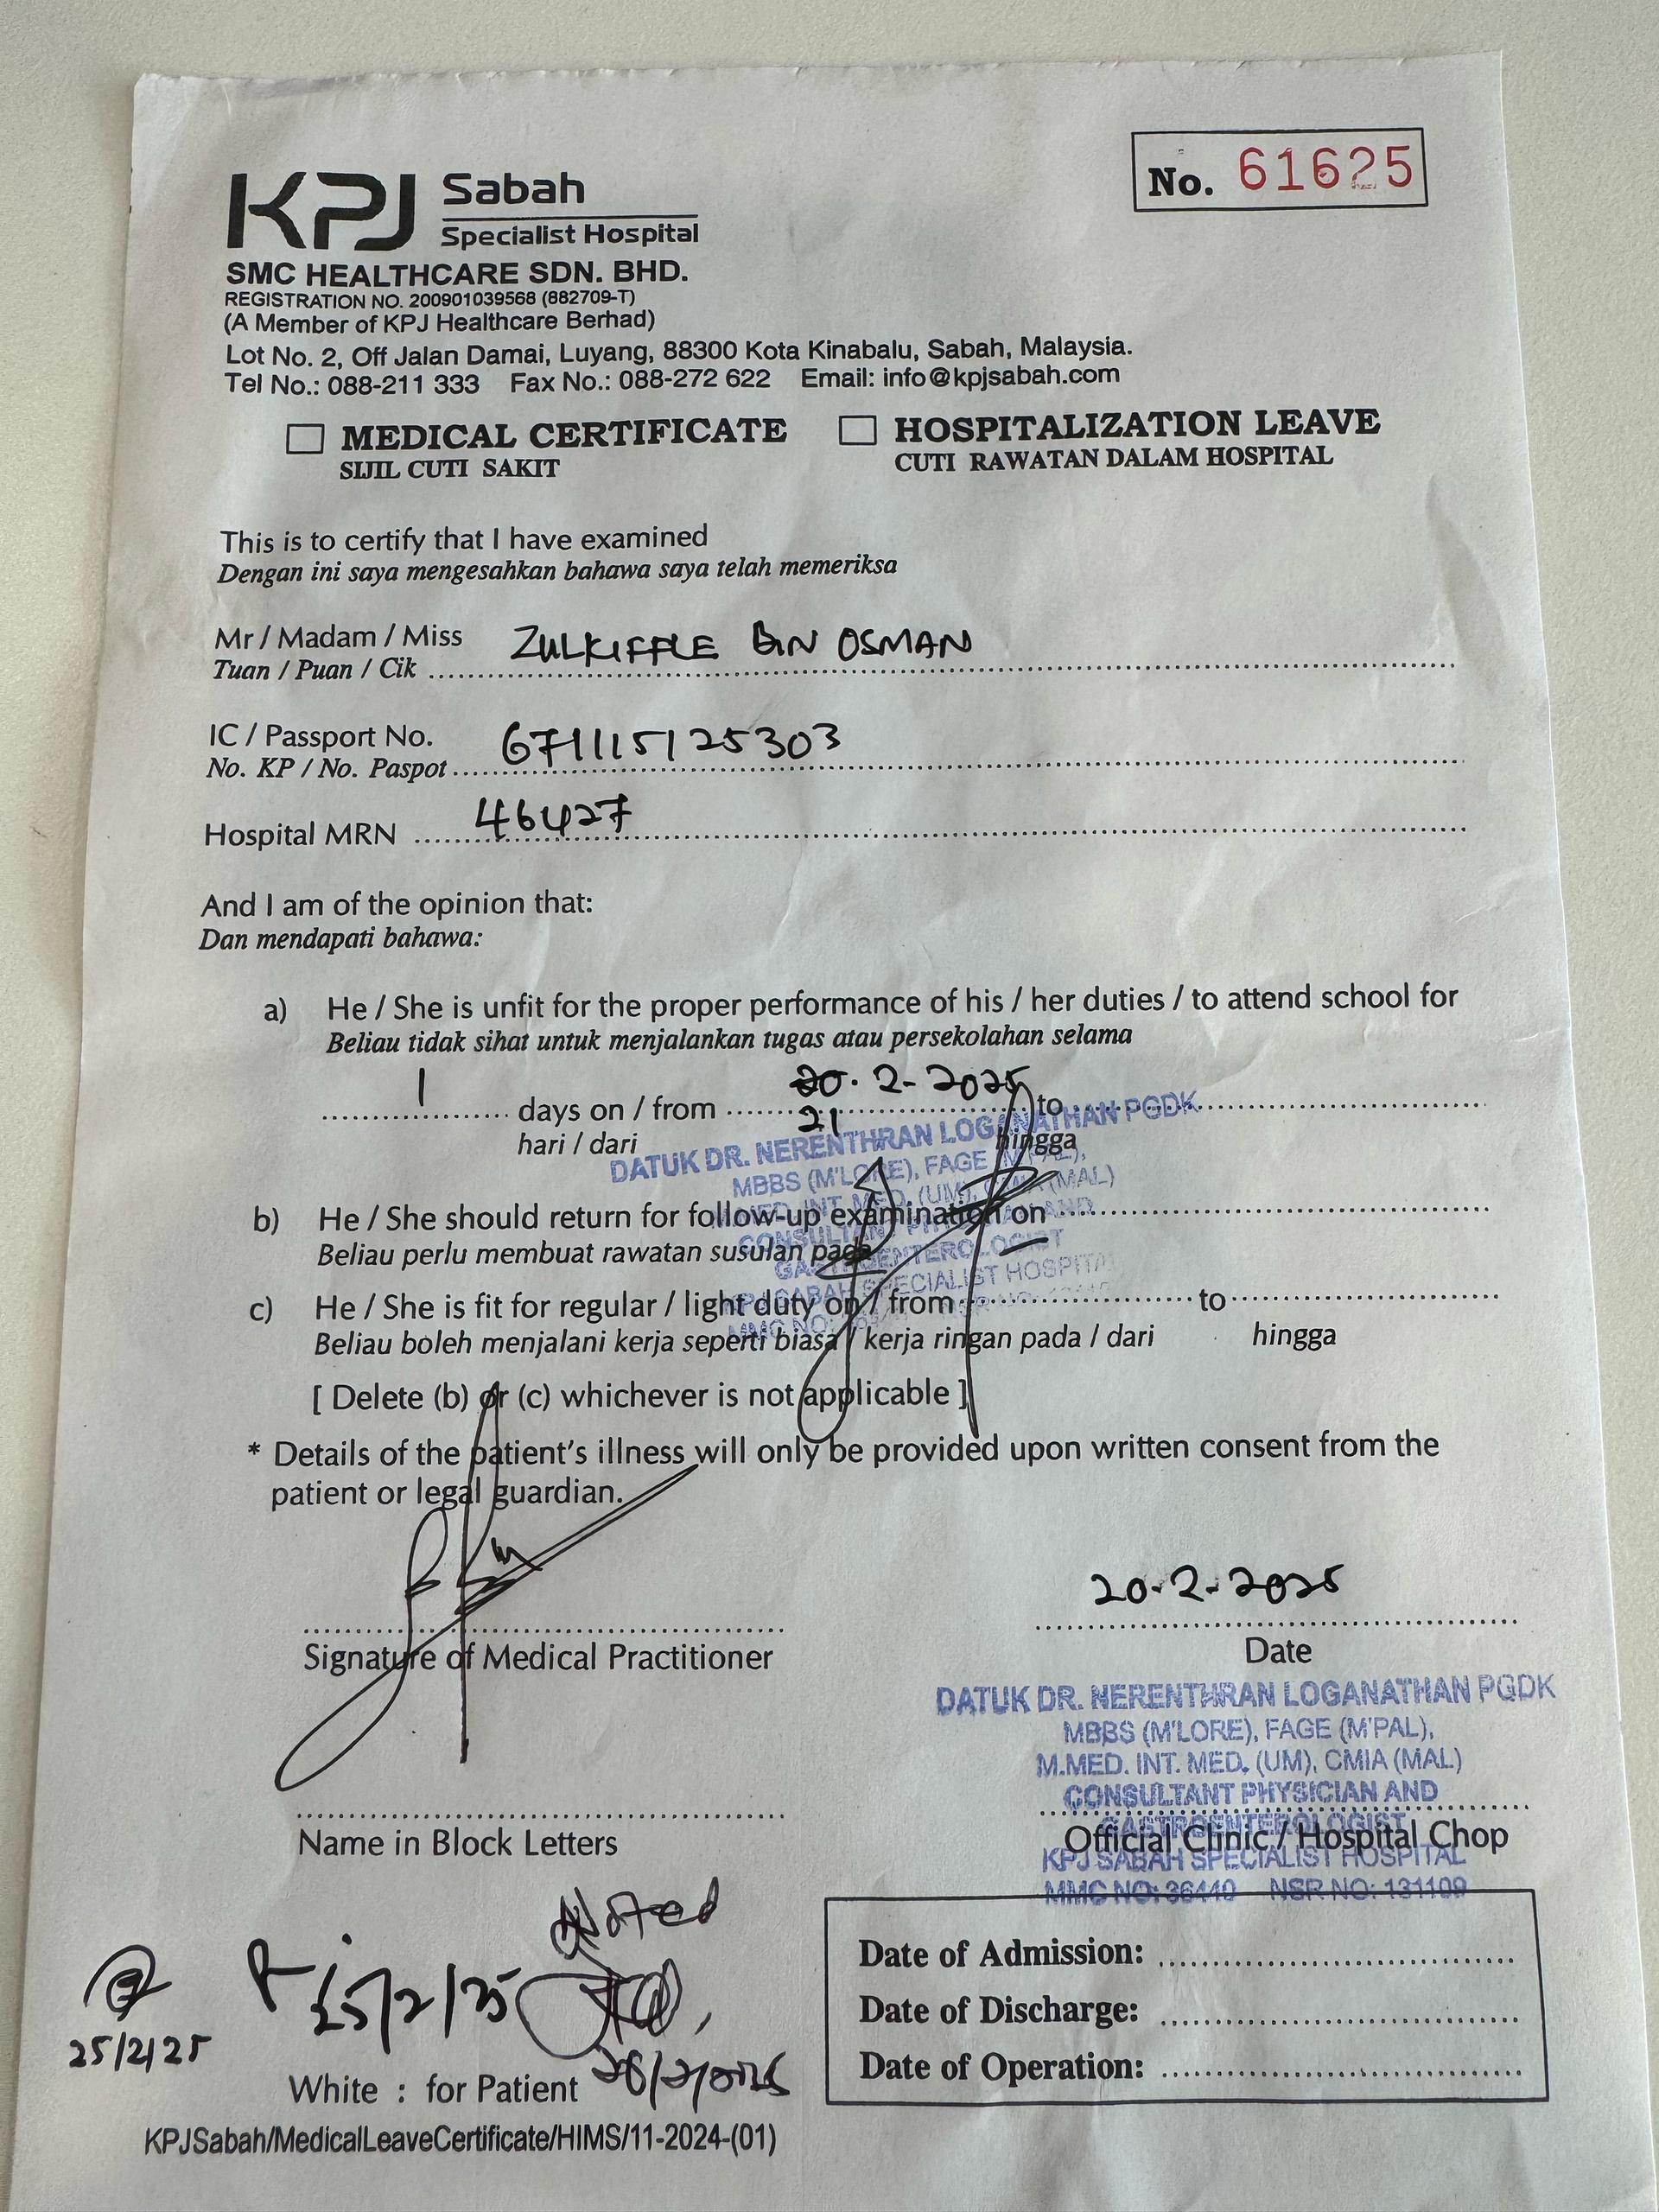 No. 61625
KPJ Sabah
Specialist Hospital
SMC HEALTHCARE SDN. BHD.
REGISTRATION NO. 200901039568 (882709-T)
(A Member of KPJ Healthcare Berhad)
Lot No. 2, Off Jalan Damai, Luyang, 88300 Kota Kinabalu, Sabah, Malaysia.
Tel No.: 088-211 333 Fax No.: 088-272 622 Email: info@kpjsabah.com
MEDICAL CERTIFICATE HOSPITALIZATION LEAVE
SIJIL CUTI SAKIT CUTI RAWATAN DALAM HOSPITAL
This is to certify that I have examined
Dengan ini saya mengesahkan bahawa saya telah memeriksa
Mr / Madam / Miss ZULKIFFLE BIN OSMAN
Tuan / Puan / Cik
IC / Passport No. 671115125303
No. KP / No. Paspot
Hospital MRN 46427
And I am of the opinion that:
Dan mendapati bahawa:
a) He / She is unfit for the proper performance of his / her duties / to attend school for
Beliau tidak sihat untuk menjalankan tugas atau persekolahan selama
1 days on / from 20.2-2025 to
21
hari / dari hingga
DATUK DR. NERENTHRAN LOGANATHAN PGDK
MBBS (M'LORE), FAGE (M'PAL),
M.MED. INT. MED. (UM), CMIA (MAL)
CONSULTANT PHYSICIAN AND
GASTROENTEROLOGIST
KPJ SABAH SPECIALIST HOSPITAL
MMC NO:
b) He / She should return for follow-up examination on
Beliau perlu membuat rawatan susulan pada
c) He / She is fit for regular / light duty on / from to
Beliau boleh menjalani kerja seperti biasa / kerja ringan pada / dari hingga
[ Delete (b) or (c) whichever is not applicable ]
* Details of the patient's illness will only be provided upon written consent from the
patient or legal guardian.
20.2.2025
Signature of Medical Practitioner Date
DATUK DR. NERENTHRAN LOGANATHAN PGDK
MBBS (M'LORE), FAGE (M'PAL),
M.MED. INT. MED. (UM), CMIA (MAL)
CONSULTANT PHYSICIAN AND
GASTROENTEROLOGIST
Name in Block Letters Official Clinic / Hospital Chop
KPJ SABAH SPECIALIST HOSPITAL
MMC NO: 36440 NSR NO: 131109
Noted
25/2/25
25/2/25
26/2/2025
Date of Admission:
Date of Discharge:
Date of Operation:
White : for Patient
KPJSabah/MedicalLeaveCertificate/HIMS/11-2024-(01)